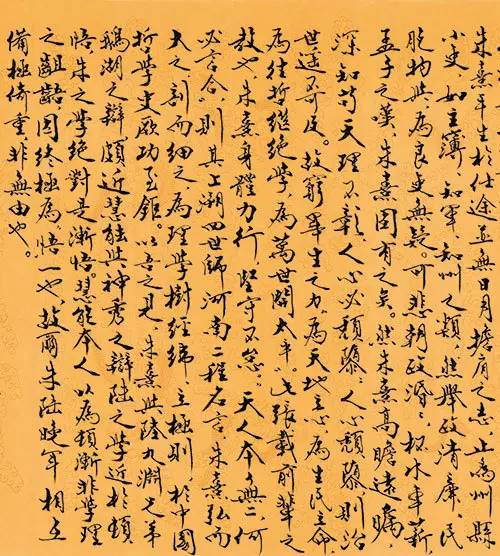 朱熹平生於仕途並無日月擔肩之志，止為州縣
小吏，如主簿、知軍、知州之類，然舉政清廉，民
胞物與，為良吏無疑。可悲朝政，杯水車薪
孟子之嘆，朱熹固有之矣。然朱熹高瞻遠矚，
深知苟天理不彰，人心必頹隳；人心頹隳則治
世遥不可及。故窮畢生之力，為天地立心為生民立命，
為往哲繼絕學，為萬世開太平。此張載前輩之
教也，朱熹身體力行，堅守不怠。天人本無二，何
必言合，則其上溯四世師河南二程名言，朱熹弘而
大之，剖而細之，為理學樹經緯，立極則，於中國
哲學史厥功至鉅。以吾之見，朱熹與陸九淵兄弟
鵝湖之辯頗近慧能與神秀之辯，陸之學近於頓
悟，朱之學絕對是漸悟。慧能本人以為頓漸非學理
之齟齬，因終極為悟一也，故爾朱陸晚年相互
備極倚重，非無由也。